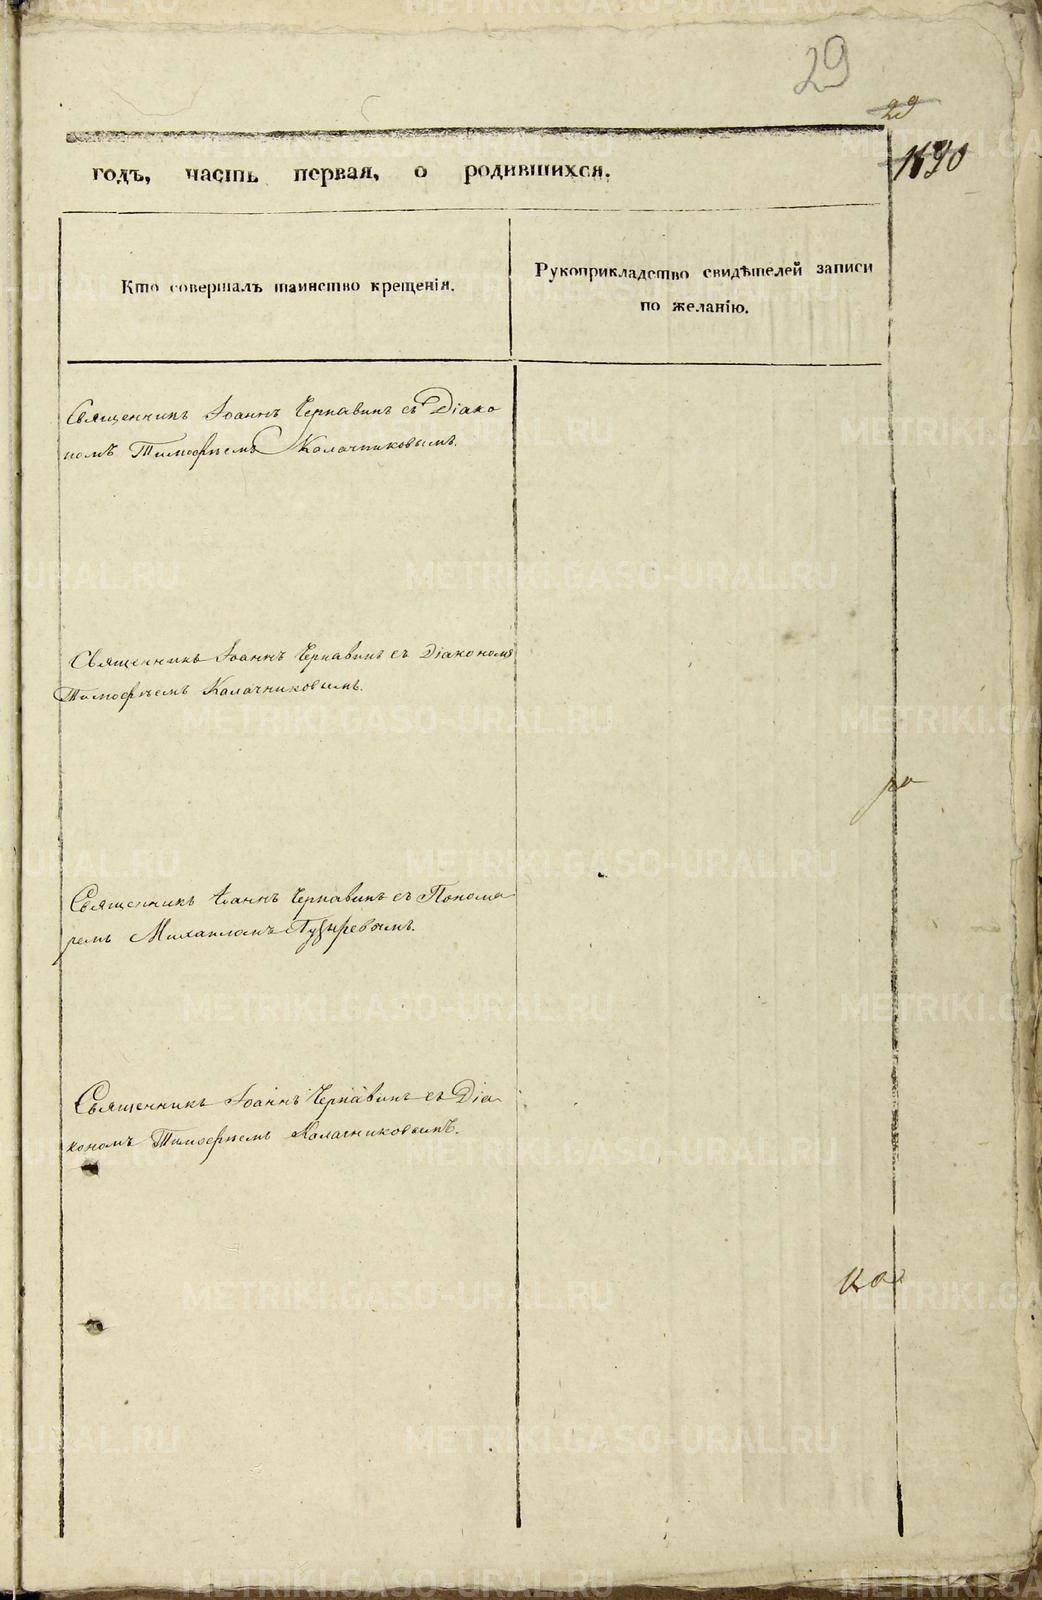 29
29
1840
годъ, часть первая, о родившихся.
Кто совершалъ таинство крещенія.
Рукоприкладство свидѣтелей записи
по желанію.
Священникъ Іоаннъ Чернавинъ съ Діако
номъ Тимофѣемъ Калачниковымъ.
Священникъ Іоаннъ Чернавинъ съ Діакономъ
Тимофѣемъ Калачниковымъ.
Священникъ Іоаннъ Чернавинъ съ Понома
ремъ Михаиломъ Пузыревымъ.
Священникъ Іоаннъ Чернавинъ съ Діа
кономъ Тимофѣемъ Калачниковымъ.
METRIKI.GASO-URAL.RU